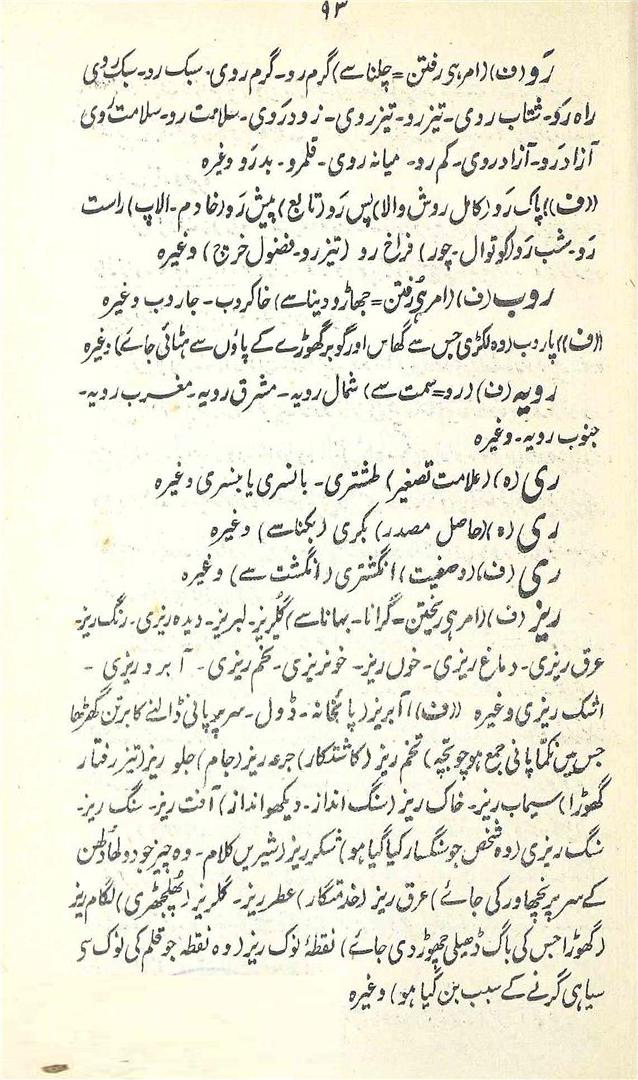 ۹۳
رَو (ف) (امر ہی رفتن = چلنا سے) گرم رو۔ گرم روی۔ سبک رو۔ سبک روی
راہ رَو۔ شتاب روی۔ تیز رو۔ تیز روی۔ زود رَوی۔ سلامت رو۔ سلامت رَوی
آزاد رَو۔ آزاد روی۔ کم رو۔ میانہ روی۔ قلمرو۔ بدرَو وغیرہ
((ف)) پاک رَو (کامل روش والا) پس رَو (تابع) پیش رَو (خادم۔ الاپ) راست
رَو۔ شب رَو (کوتوال۔ چور) فراخ رو (تیز رو۔ فضول خرچ) وغیرہ
روب (ف) (امر ہی رُفتن = جھاڑو دینا سے) خاکروب۔ جاروب وغیرہ
((ف)) پاروب (وہ لکڑی جس سے گھاس اور گوبر گھوڑے کے پاؤں سے ہٹائی جائے) وغیرہ
رویہ (ف) (رو = سمت سے) شمال رویہ۔ مشرق رویہ۔ مغرب رویہ۔
جنوب رویہ۔ وغیرہ
ری (ہ) (علامت تصغیر) طشتری۔ بانسری یا بنسری وغیرہ
ری (ہ) (حاصل مصدر) بکری (بکنا سے) وغیرہ
ری (ف) (وصفیت) انگشتری (انگشت سے) وغیرہ
ریز (ف) (امر ہی ریختن = گرانا۔ بہانا سے) گلریز۔ لبریز۔ دیدہ ریزی۔ رنگ ریز۔
عرق ریزی۔ دماغ ریزی۔ خوں ریز۔ خونریزی۔ تخم ریزی۔ آبرو ریزی۔
اشک ریزی وغیرہ ((ف)) آبریز (پائخانہ۔ ڈول۔ سر پر پانی ڈالنے کا برتن گھڑھا
جس میں نکمّا پانی جمع ہو چوبچہ) تخم ریز (کاشتکار) جرعہ ریز (جام) جلو ریز (تیز رفتار
گھوڑا) سیماب ریز۔ خاک ریز (سنگ انداز۔ دیکھو انداز) آفت ریز۔ سنگ ریز۔
سنگ ریزی (وہ شخص جو سنگسار کیا گیا ہو) شکر ریز (شیریں کلام۔ وہ چیز جو دولھا دُلھن
کے سر پر نچھاور کی جائے) عرق ریز (خدمتگار) عطر ریز۔ گلریز (پھلجھڑی) لگام ریز
(گھوڑا جس کی باگ ڈھیلی چھوڑ دی جائے) نقطۂ نوک ریز (وہ نقطہ جو قلم کی نوک سی
سیاہی گرنے کے سبب بن گیا ہو) وغیرہ